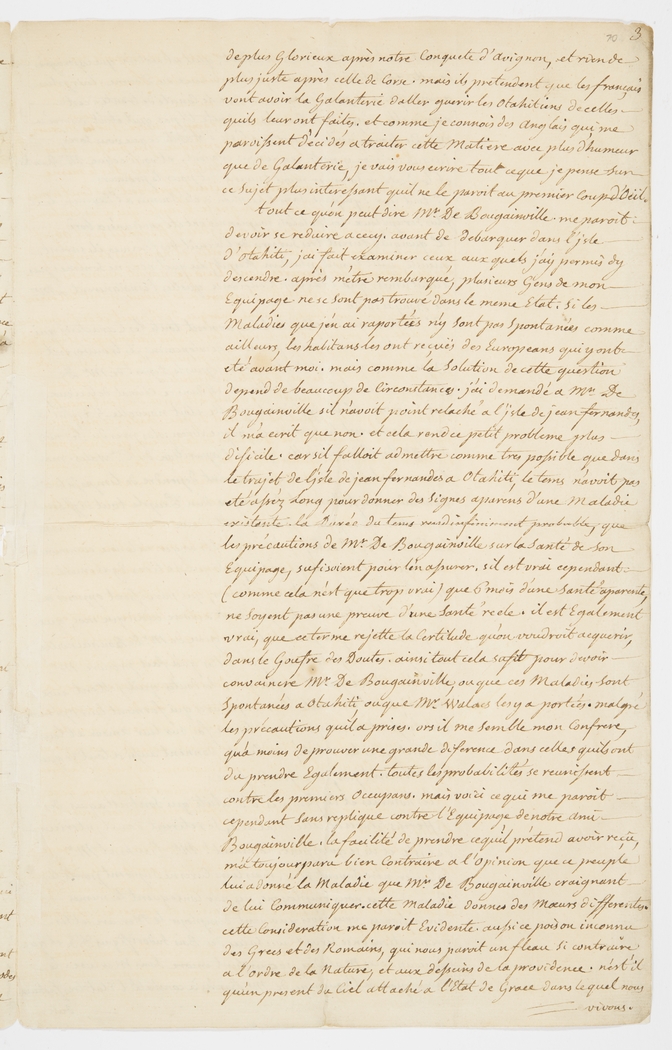 70 3
de plus Glorieux après notre Conquete d'avignon, et rien de
plus juste après celle de Corse. mais ils pretendent que les français
vont avoir la Galanterie d'aller guerir les Otahitiens de celles
qu'ils leur ont faites. et comme je connois des Anglais qui me
paroissent décidés a traiter cette Matiere avec plus d'humeur
que de Galanterie, je vais vous ecrire tout ce que je pense sur
ce Sujet plus interessant qu'il ne le paroit au premier Coup d'Oeil.
tout ce qu'en peut dire Mr. De Bougainville me paroit
devoir se reduire a cecy. avant de debarquer dans l'isle
d'Otahiti, j'ai fait examiner ceux aux quels j'ay permis d'y
descendre. après m'etre rembarqué, plusieurs Gens de mon
Equipage ne se sont pas trouvé dans le meme Etat. Si les
Maladies que j'en ai raportées n'y sont pas Spontanées comme
ailleurs, les habitans les ont reçues des Europeans qui y ont
eté avant moi. mais comme la Solution de cette question
depend de beaucoup de Circonstances. j'ai demandé a Mr. De
Bougainville s'il n'avoit point relaché a l'isle de jean fernandes,
il m'a ecrit que non. et cela rend ce petit probleme plus
dificile. car s'il falloit admettre comme tres possible que dans
le trajet de l'isle de jean fernandes a Otahiti, le tems n'avoit pas
eté assez Long pour donner des Signes aparens d'une Maladie
existente. la Durée du tems rend infiniment probable, que
les précautions de Mr. De Bougainville sur la Santé de son
Equipage, sufisoient pour l'en assurer. s'il est vrai cependant
(comme cela n'est que trop vrai) que 6 mois d'une Santé aparente,
ne soyent pas une preuve d'une Santé réele. il est Egalement
vrai, que ce terme rejette la Certitude qu'on voudroit acquerir,
dans le Goufre des Doutes. ainsi tout cela sufit pour devoir
convaincre Mr. De Bougainville, ou que ces Maladies sont
Spontanées a Otahiti, ou que Mr. Walaes les y a portées. malgré
les précautions qu'il a prises. ors il me semble mon Confrere,
qu'a moins de prouver une grande diference dans celles qu'ils ont
du prendre Egalement. toutes les probabilités se reunissent
contre les premiers Occupans. mais voici ce qui me paroit
cependant sans replique contre l'Equipage de notre ami
Bougainville. la facilité de prendre ce qu'il prétend avoir reçu,
m'a toujour paru bien Contraire a l'Opinion que ce peuple
lui a donné la Maladie que Mr. De Bougainville craignant
de lui Communiquer. cette Maladie donne des Mœurs differentes.
cette Consideration me paroit Evidente. aussi ce poison inconnu
des Grecs et des Romains, qui nous paroit un fleau si contraire
a l'ordre de la Nature, et aux desseins de la providence. n'est il
qu'un present du Ciel attaché a l'Etat de Grace dans le quel nous
vivons.